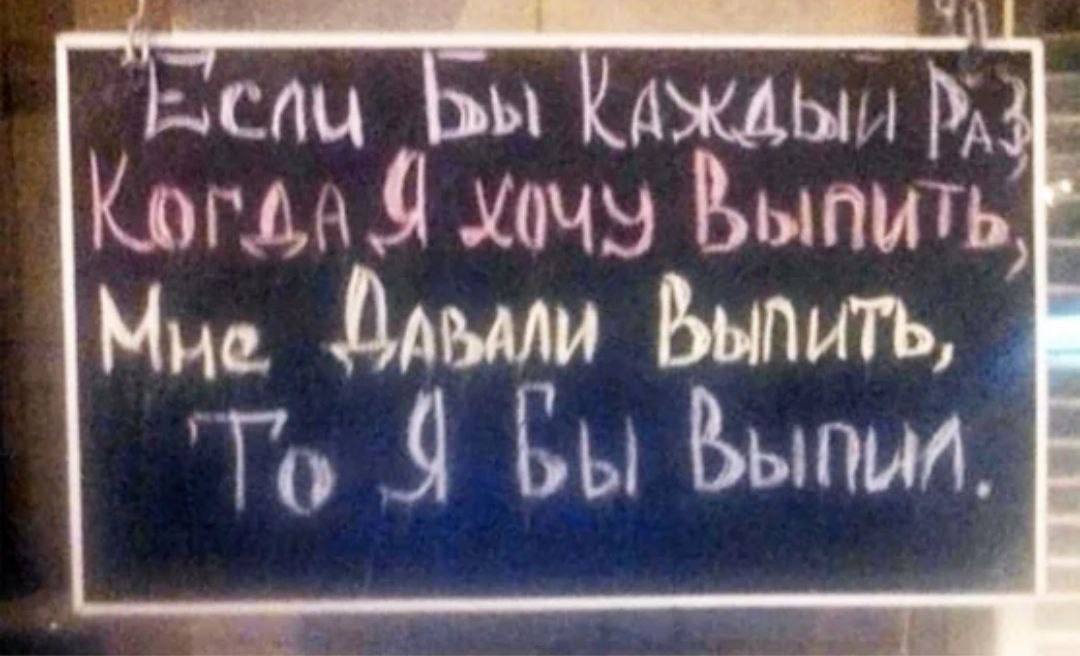 Если Бы Каждый Раз,
Когда Я хочу Выпить,
Мне Давали Выпить,
То Я Бы Выпил.